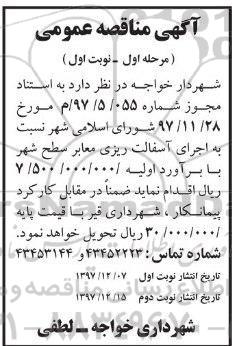 آگهی مناقصه عمومی
(مرحله اول - نوبت اول)
شهردار خواجه در نظر دارد به استناد
مجوز شماره ۹۷/۵/۰۵۵/م مورخ
۹۷/۱۱/۲۸ شورای اسلامی شهر نسبت
به اجرای آسفالت ریزی معابر سطح شهر
با برآورد اولیه ۷/۵۰۰/۰۰۰/۰۰۰
ریال اقدام نماید ضمناً در مقابل کارکرد
پیمانکار، شهرداری قیر با قیمت پایه
۳۰/۰۰۰/۰۰۰ ریال تحویل خواهد نمود.
شماره تماس: ۴۳۴۵۲۲۲۳ و ۴۳۴۵۳۱۴۴
تاریخ انتشار نوبت اول ۱۳۹۷/۱۲/۰۷
تاریخ انتشار نوبت دوم ۱۳۹۷/۱۲/۱۵
شهرداری خواجه - لطفی